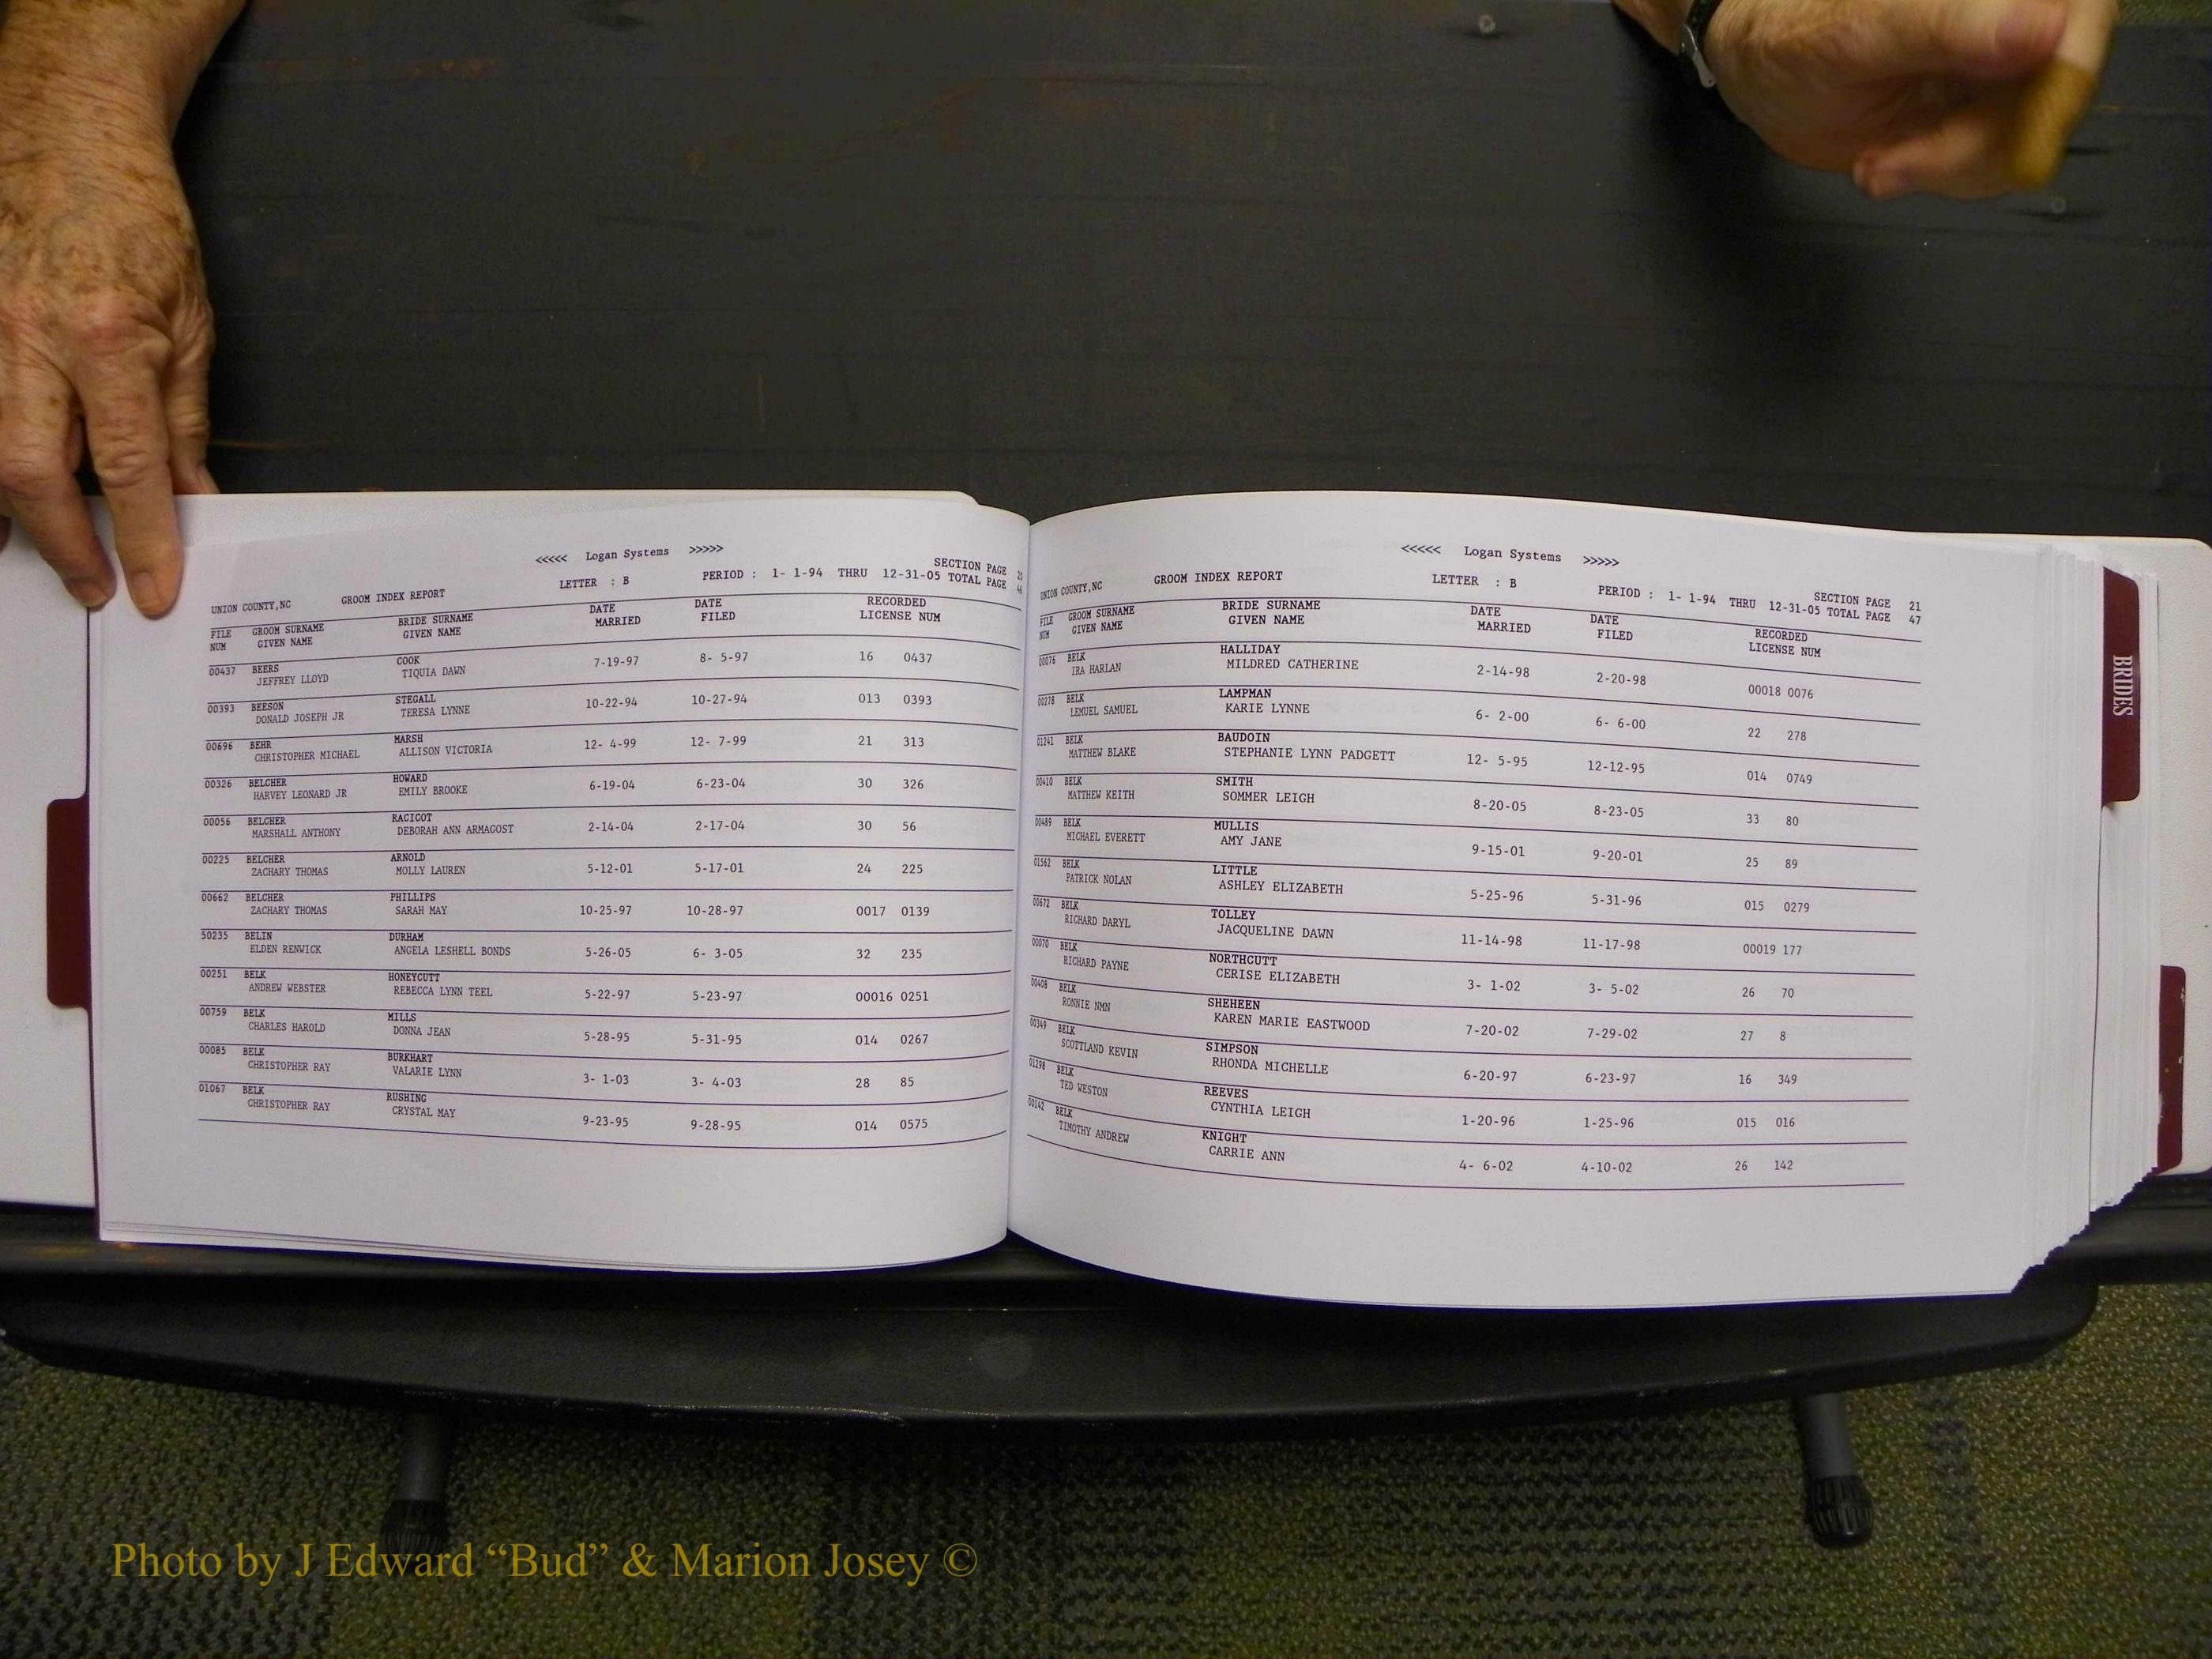 <<<<< Logan Systems >>>>>
SECTION PAGE 20
LETTER : B PERIOD : 1- 1-94 THRU 12-31-05 TOTAL PAGE 46
UNION COUNTY,NC GROOM INDEX REPORT
FILE GROOM SURNAME BRIDE SURNAME DATE DATE RECORDED
NUM GIVEN NAME GIVEN NAME MARRIED FILED LICENSE NUM
00437 BEERS COOK
JEFFREY LLOYD TIQUIA DAWN 7-19-97 8- 5-97 16 0437
00393 BEESON STEGALL
DONALD JOSEPH JR TERESA LYNNE 10-22-94 10-27-94 013 0393
00696 BEHR MARSH
CHRISTOPHER MICHAEL ALLISON VICTORIA 12- 4-99 12- 7-99 21 313
00326 BELCHER HOWARD
HARVEY LEONARD JR EMILY BROOKE 6-19-04 6-23-04 30 326
00056 BELCHER RACICOT
MARSHALL ANTHONY DEBORAH ANN ARMAGOST 2-14-04 2-17-04 30 56
00225 BELCHER ARNOLD
ZACHARY THOMAS MOLLY LAUREN 5-12-01 5-17-01 24 225
00662 BELCHER PHILLIPS
ZACHARY THOMAS SARAH MAY 10-25-97 10-28-97 0017 0139
50235 BELIN DURHAM
ELDEN RENWICK ANGELA LESHELL BONDS 5-26-05 6- 3-05 32 235
00251 BELK HONEYCUTT
ANDREW WEBSTER REBECCA LYNN TEEL 5-22-97 5-23-97 00016 0251
00759 BELK MILLS
CHARLES HAROLD DONNA JEAN 5-28-95 5-31-95 014 0267
00085 BELK BURKHART
CHRISTOPHER RAY VALARIE LYNN 3- 1-03 3- 4-03 28 85
01067 BELK RUSHING
CHRISTOPHER RAY CRYSTAL MAY 9-23-95 9-28-95 014 0575
<<<<< Logan Systems >>>>>
UNION COUNTY,NC GROOM INDEX REPORT LETTER : B
SECTION PAGE 21
PERIOD : 1- 1-94 THRU 12-31-05 TOTAL PAGE 47
FILE GROOM SURNAME BRIDE SURNAME DATE DATE RECORDED
NUM GIVEN NAME GIVEN NAME MARRIED FILED LICENSE NUM
00076 BELK HALLIDAY
IRA HARLAN MILDRED CATHERINE 2-14-98 2-20-98 00018 0076
00278 BELK LAMPMAN
LEMUEL SAMUEL KARIE LYNNE 6- 2-00 6- 6-00 22 278
01241 BELK BAUDOIN
MATTHEW BLAKE STEPHANIE LYNN PADGETT 12- 5-95 12-12-95 014 0749
00410 BELK SMITH
MATTHEW KEITH SOMMER LEIGH 8-20-05 8-23-05 33 80
00489 BELK MULLIS
MICHAEL EVERETT AMY JANE 9-15-01 9-20-01 25 89
01562 BELK LITTLE
PATRICK NOLAN ASHLEY ELIZABETH 5-25-96 5-31-96 015 0279
00672 BELK TOLLEY
RICHARD DARYL JACQUELINE DAWN 11-14-98 11-17-98 00019 177
00070 BELK NORTHCUTT
RICHARD PAYNE CERISE ELIZABETH 3- 1-02 3- 5-02 26 70
00408 BELK SHEHEEN
RONNIE NMN KAREN MARIE EASTWOOD 7-20-02 7-29-02 27 8
00349 BELK SIMPSON
SCOTTLAND KEVIN RHONDA MICHELLE 6-20-97 6-23-97 16 349
01298 BELK REEVES
TED WESTON CYNTHIA LEIGH 1-20-96 1-25-96 015 016
00142 BELK KNIGHT
TIMOTHY ANDREW CARRIE ANN 4- 6-02 4-10-02 26 142
BRIDES
Photo by J Edward “Bud” & Marion Josey ©